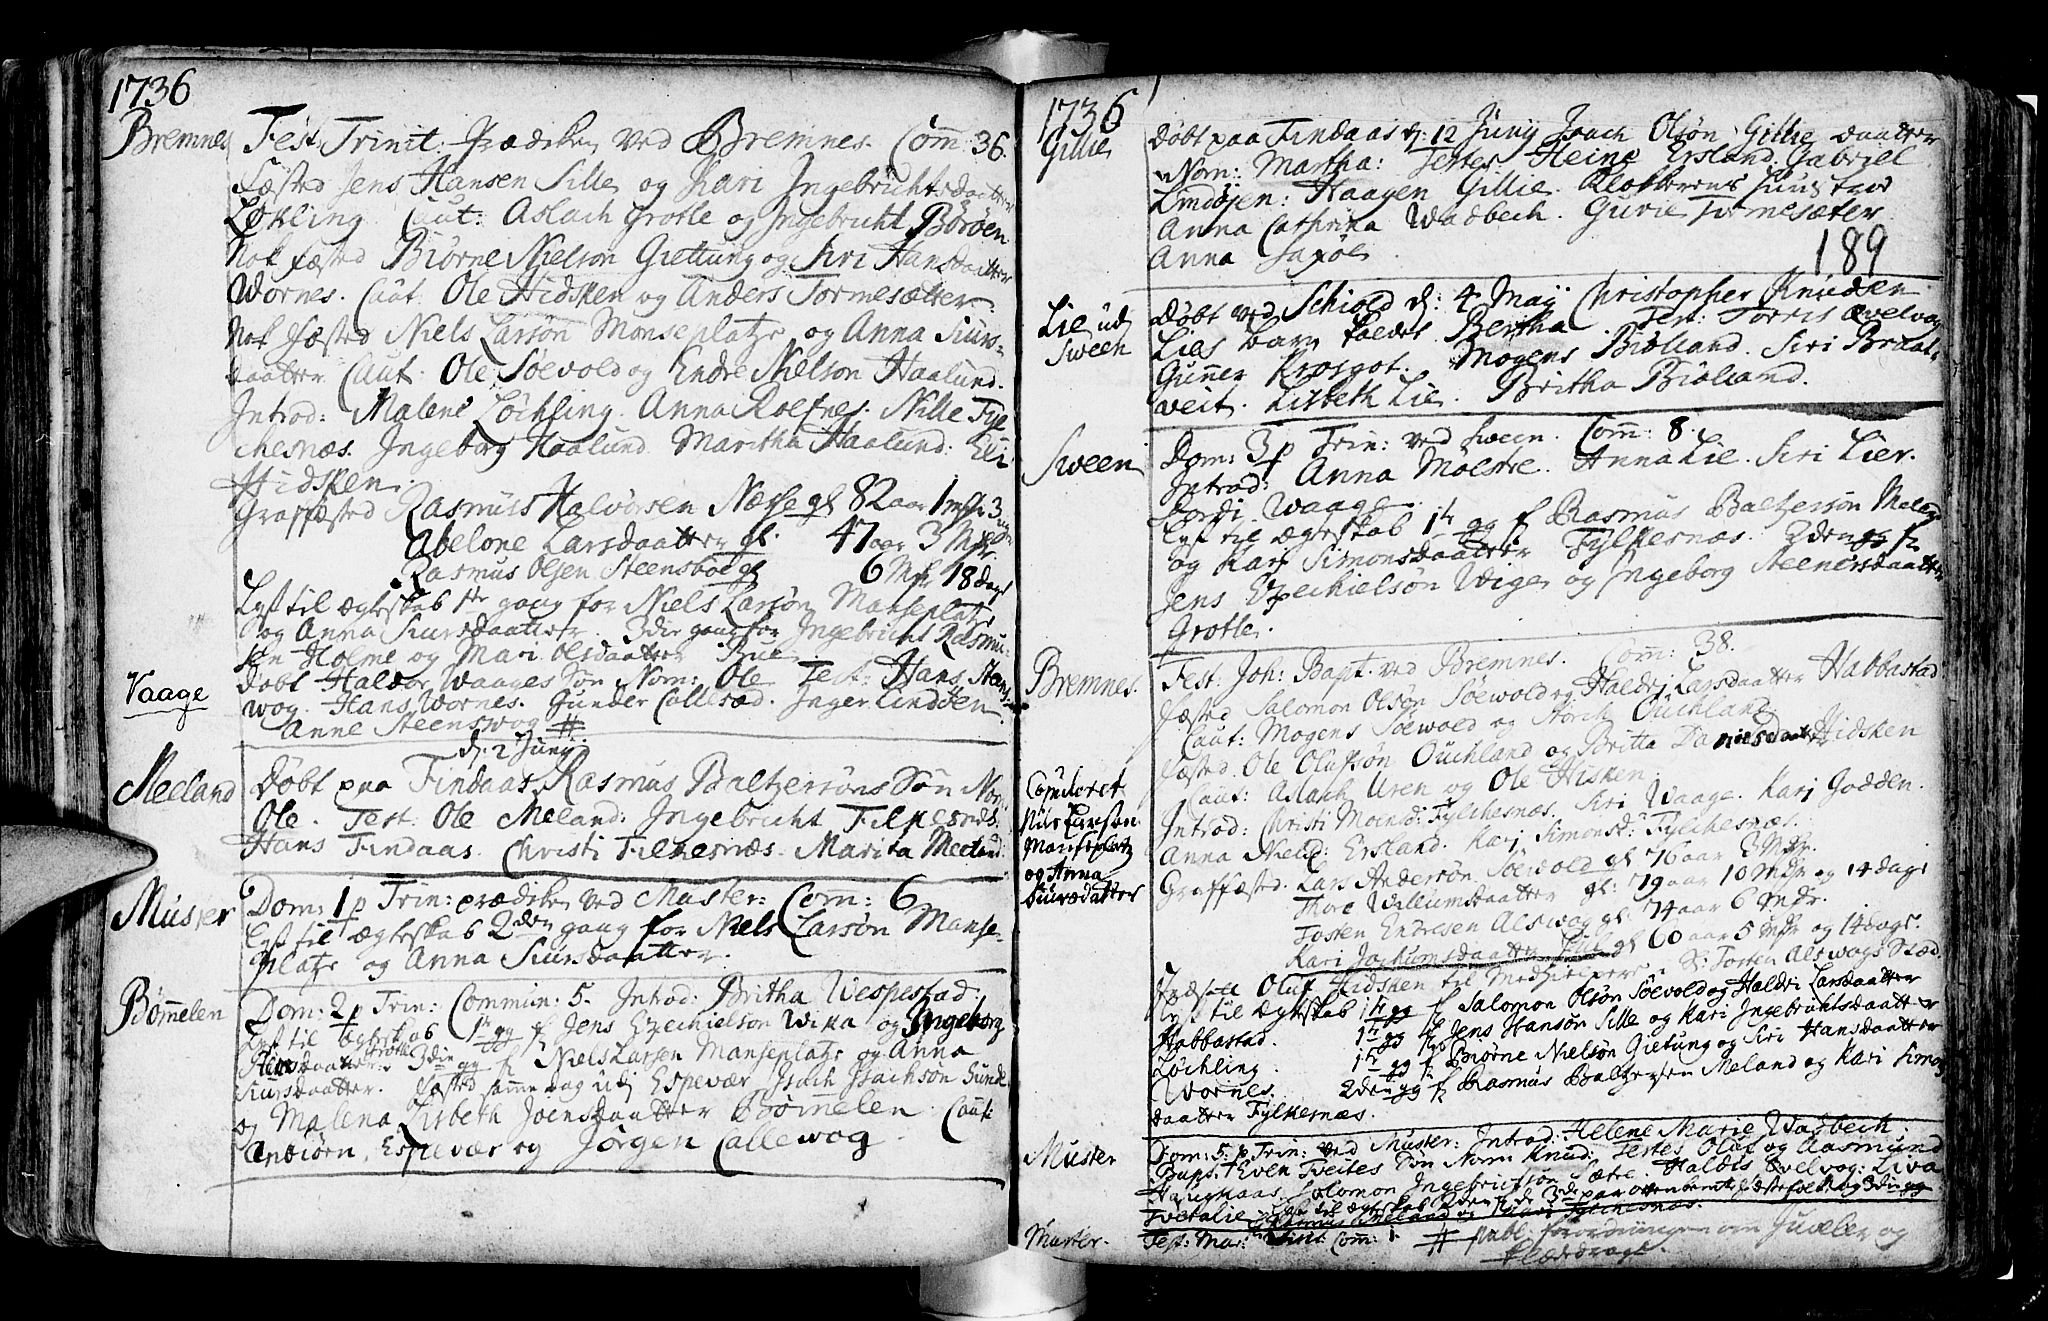 1736
Bremnes Fest: Trinit: Prædiken ved Bremnes. Com̄: 36.
Fæsted Jens Hansen Sille og Kari Ingebrichtsdaatter
Løkling. Caut: Aslach Grotle og Ingebricht Børøen
Nok fæsted Biørne Nielsøn Giettung og Siri Hansdaatter
Wornes. Caut: Ole Hidsken og Anders Tormesætter
Nok fæsted Niels Larsøn Monseplatz og Anna Siurs-
daatter Caut: Ole Søevold og Endre Nielsøn Haalund.
Introd: Malene Løchling. Anna Roefnes. Nille Fyl-
chesnæs. Ingeborg Haalund. Maritha Haalund. Eli
Hidsken.
Graffæsted Rasmus Halvorsen Næsse gl 82 aar 1 mdr 3
Abelone Larsdaatter gl. 47 aar 3 Mdr.
Rasmus Olsen Steensbøe gl 6 Mdr 18 dage
Lyst til ægteskab 1ste gang for Niels Larsøn Manseplatz
og Anna Siursdaatter. 3die gang for Ingebricht Rasmu-
sen Holme og Mari Olsdaatter Rue
Vaage Døbt Haldor Waages Søn Nom: Ole Test: Hans Stens-
wog. Hans Wornes. Gunder Callevad. Inger Lindøen
Anne Steenswog #
d: 2 Junij
Meeland Døbt paa Findaas Rasmus Baltzersøns Søn Nom:
Ole. Test: Ole Meland: Ingebricht Filkesnæs.
Hans Findaas. Christi Filkesnæs. Marita Meeland.
Muster Dom: 1 p Trin: prædiken ved Muster: Com̄: 6
Lyst til ægteskab 2den gang for Niels Larsøn Manse-
platz og Anna Siursdaatter.
Bøm̄elen Dom: 2 p Trin: Commun: 5. Introd: Britha Wespestad:
Lyst til ægteskab 1te gg f Jens Ezechielsøn Wika og Ingeborg
Steensdaatter Grotle. 3die gg f Niels Larsen Manseplatz og Anna
Siursdaatter. Fæsted samme dag udj Espevær Isach Isachsøn Sunde
og Malena Lisbeth Joensdaatter Bøm̄elen. Caut:
Anbiørn Espevær og Jørgen Callewog.
1736
Gillie Døbt paa Findaas d: 12 Junij Isach Olsøn Gillie daatter
Nom: Martha: Testes Heine Ersland. Gabriel
Lindøen: Haagen Gillie. Klokkerens Hustroe
Anna Cathrina Wadbech. Gurie Tormesæter.
Anna Saxøl.
189
Lie ud Døbt ved Schiold d: 4 Maij Christopher Knudsen
Sween Lies barn kaldet Bertha. Test: Torris Ævelvog
Gunner Krosgot. Mogens Biølland. Siri Braat-
veit. Lisbeth Lie. Britha Biølland.
Sween Dom: 3 p Trin: ved Sween. Com̄: 8.
Introd: Anna Moestre. Anna Lie. Siri Lier.
Gordi Waage.
Lyst til ægteskab 1te gg f Rasmus Baltzersøn Meland
og Kari Simonsdaatter Fylkesnæs. 2den gg f
Jens Ezechielsøn Wige og Ingeborg Steenersdaatter
Grotle.
Bremnes. Fest: Joh: Bapt. ved Bremnes. Com̄: 38.
Fæsted Salomon Olsen Søewold og Haldri Larsdaatter Habbastad
Caut: Mogens Søewold og Størch Ouchland
Fæsted Ole Olufsøn Ouchland og Britta Danielsdaatter Hidsken
Caut: Aslach Uren og Ole Hisken.
Copuleret
Nils Larsøn
Manseplatz
og Anna
Siursdatter
Introd: Christi Moensd: Fylchesnæs. Siri Waage. Kari Godden.
Anna Nielsd: Ersland. Kari Simonsd: Fylchesnæs.
Graffæsted. Lars Andersøn Søewold gl 76 aar 3 Mdr.
Thore Willumsdaatter gl: 79 aar 10 Mdr og 14 dage
Tosten Endresen Alswog gl: 74 aar 6 Mdr.
Kari Jochumsdaatter gl 60 aar 5 Mdr og 14 dage.
Præsatt Oluf Hidsken til Medhielper i S: Torsten Alswogs Stæd
Lyst til ægteskab 1te gg f Salomon Olsøn Søevold og Haldri Larsdaatter
Habbastad. 1te gg f Jens Hansøn Sille og Kari Ingebrichtsdaatter
Løchling. 1te gg f Biørne Nielsøn Gietung og Siri Hansdaatter
Wornes. 2den gg f Rasmus Baltzersen Meland og Kari Simons-
daatter Fylkesnæs.
Muster Dom: 5 p Trin: ved Muster: Introd: Helene Marie Wadbech.
Bapt: Even Tveites Søn Nom: Knud: Testes Oluf og Aasmund
Haughaas. Solomon Ingebrictsøn Sætre. Haldis Ævelvog: Liva
Tvetalie. Lyst til ægteskab 2den g f de 3de par ottenbemte fæstefolk og 3die gg
Rasmus Meland og Kari Fylchesnæs.
Muster. Fest: Mar: Visit: Com̄: 1. # publ: forordningen om Juveler og
Klædedragt.